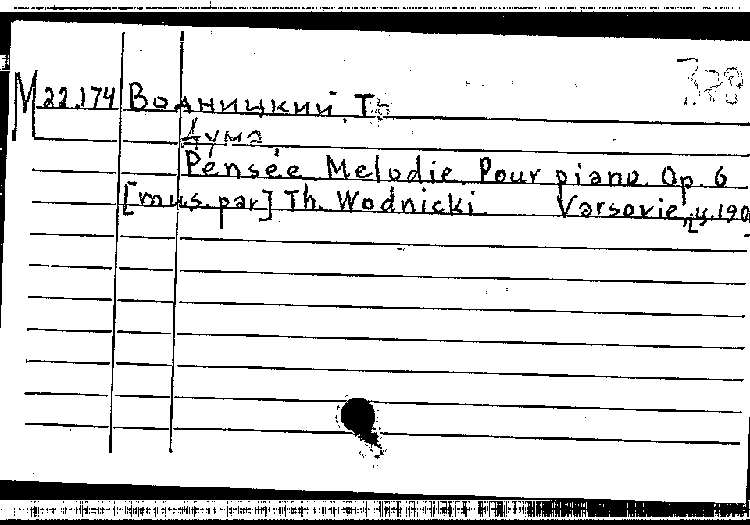 328
М 22.174 Водницкий, Т.
Дума.
Pensée Melodie Pour piano. Op. 6
[mus. par] Th. Wodnicki. Varsovie, ц. 190